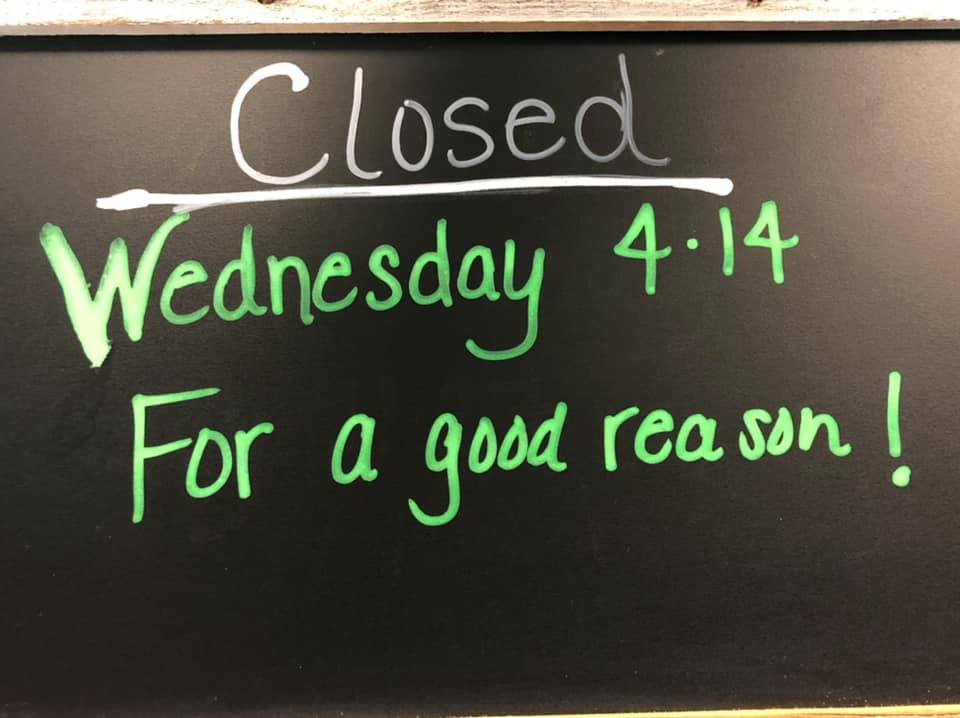 Closed
Wednesday 4.14
For a good reason!